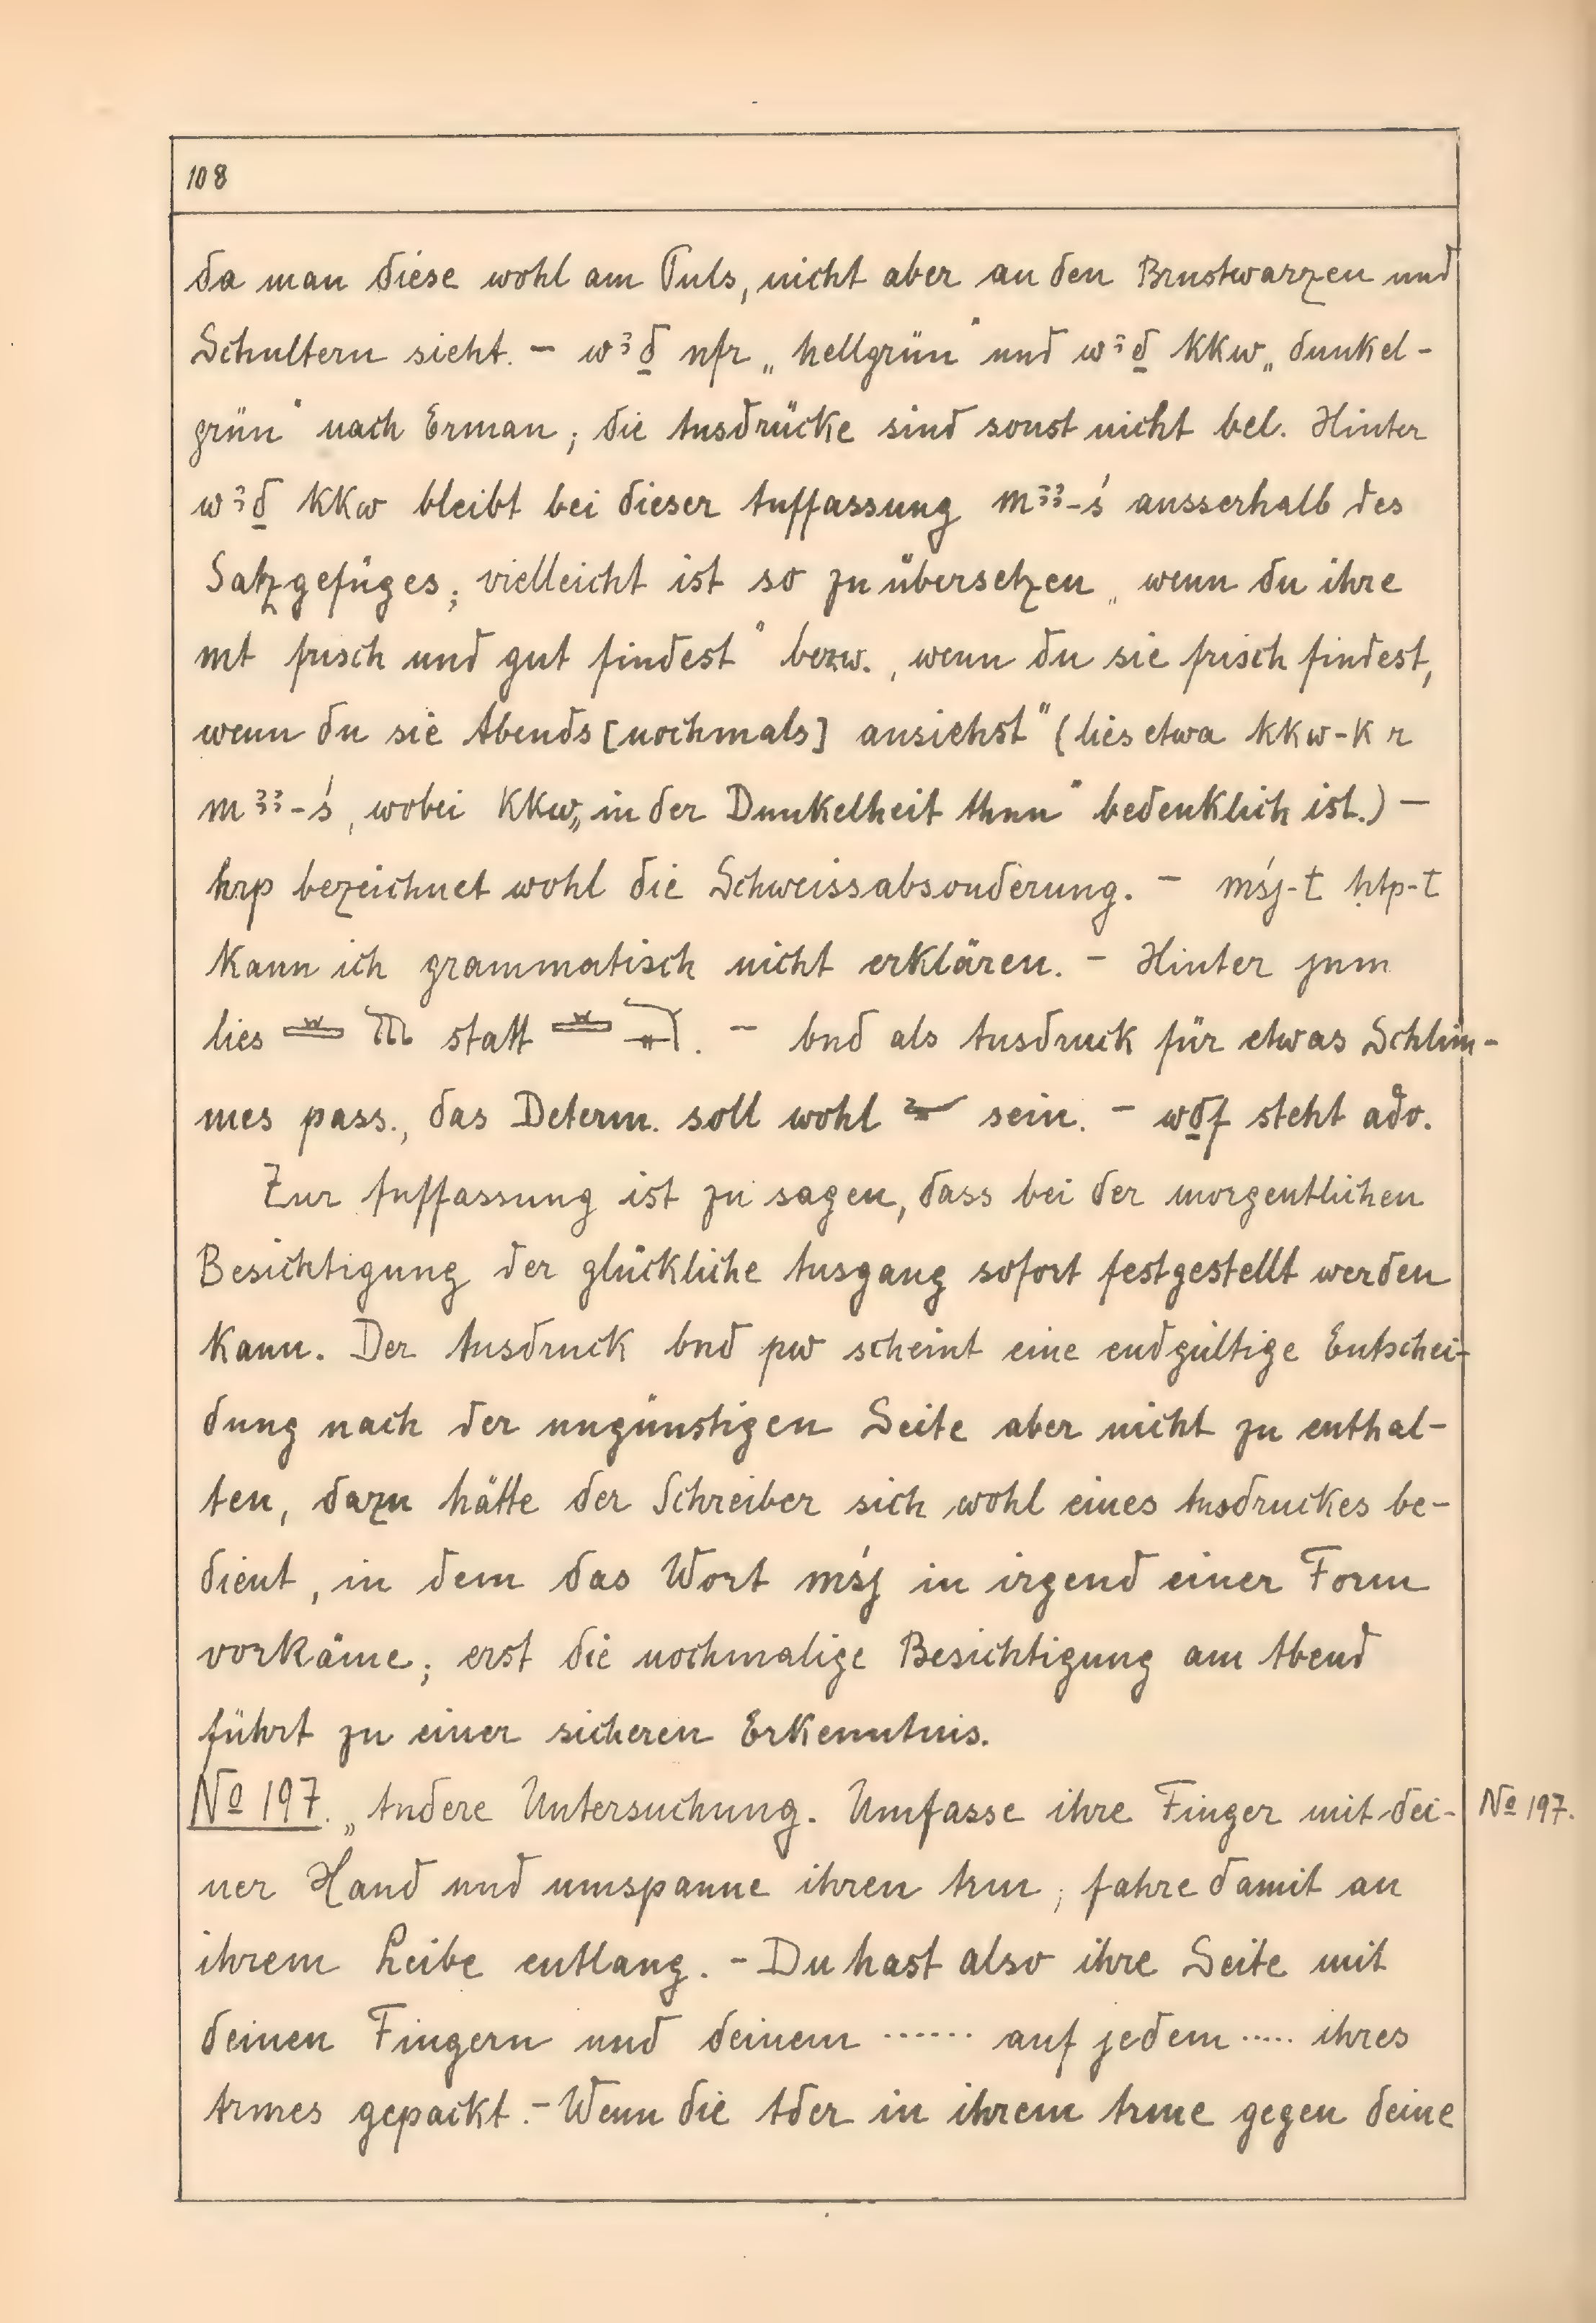 108
da man diese wohl am Puls, nicht aber an den Brustwarzen und
Schultern sieht. – wꜣḏ nfr „hellgrün" und wꜣḏ kkw „dunkel-
grün" nach Erman; die Ausdrücke sind sonst nicht bel. Hinter
wꜣḏ kkw bleibt bei dieser Auffassung mꜣꜣ-ś ausserhalb des
Satzgefüges; vielleicht ist so zu übersetzen „wenn du ihre
mt frisch und gut findest" bezw. „wenn du sie frisch findest,
wenn du sie Abends [nochmals] ansiehst" (lies etwa kkw-k r
mꜣꜣ-ś, wobei kkw „in der Dunkelheit thun" bedenklich ist.) –
hrp bezeichnet wohl die Schweissabsonderung. – mśj-t ḥtp-t
kann ich grammatisch nicht erklären. – Hinter jnm
lies 𓏠 𓄟 statt 𓏠. – bnd als Ausdruck für etwas Schlim-
mes pass., das Determ. soll wohl sein. – wḏf steht adv.
Zur Auffassung ist zu sagen, dass bei der morgentlichen
Besichtigung der glückliche Ausgang sofort festgestellt werden
kann. Der Ausdruck bnd pw scheint eine endgültige Entschei-
dung nach der ungünstigen Seite aber nicht zu enthal-
ten, dazu hätte der Schreiber sich wohl eines Ausdruckes be-
dient, in dem das Wort mśj in irgend einer Form
vorkäme; erst die nochmalige Besichtigung am Abend
führt zu einer sicheren Erkenntnis.
No 197. „Andere Untersuchung. Umfasse ihre Finger mit dei-
No 197.
ner Hand und umspanne ihren Arm; fahre damit an
ihrem Leibe entlang. – Du hast also ihre Seite mit
deinen Fingern und deinem ...... auf jedem ..... ihres
Armes gepackt. – Wenn die Ader in ihrem Arme gegen deine